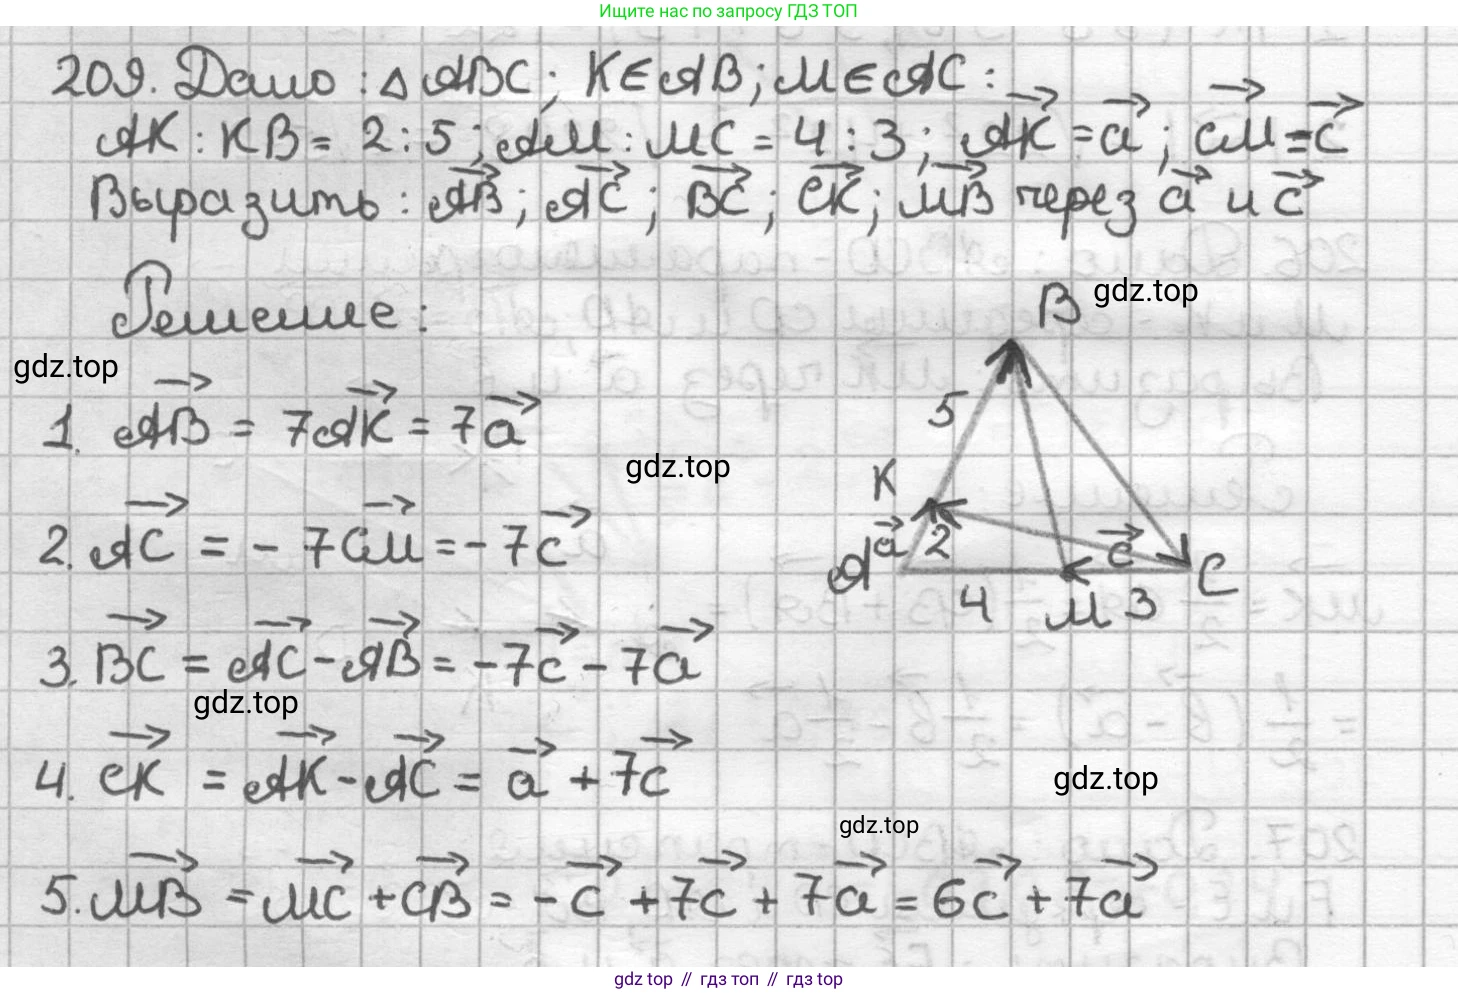 Ищите нас по запросу ГДЗ ТОП
209. Дано: △ ABC; K∈AB; M∈AC:
AK : KB = 2 : 5; AM : MC = 4 : 3; AK⃗ = a⃗; CM⃗ = c⃗
Выразить: AB⃗; AC⃗; BC⃗; CK⃗; MB⃗ через a⃗ и c⃗
Решение:
B gdz.top
gdz.top
5
1. AB⃗ = 7AK⃗ = 7a⃗
gdz.top
K
2. AC⃗ = - 7CM⃗ = - 7c⃗
A a⃗ 2 c⃗ C
4 M 3
3. BC⃗ = AC⃗ - AB⃗ = -7c⃗ - 7a⃗
gdz.top
4. CK⃗ = AK⃗ - AC⃗ = a⃗ + 7c⃗
gdz.top
gdz.top
5. MB⃗ = MC⃗ + CB⃗ = - c⃗ + 7c⃗ + 7a⃗ = 6c⃗ + 7a⃗
gdz top // гдз топ // gdz top